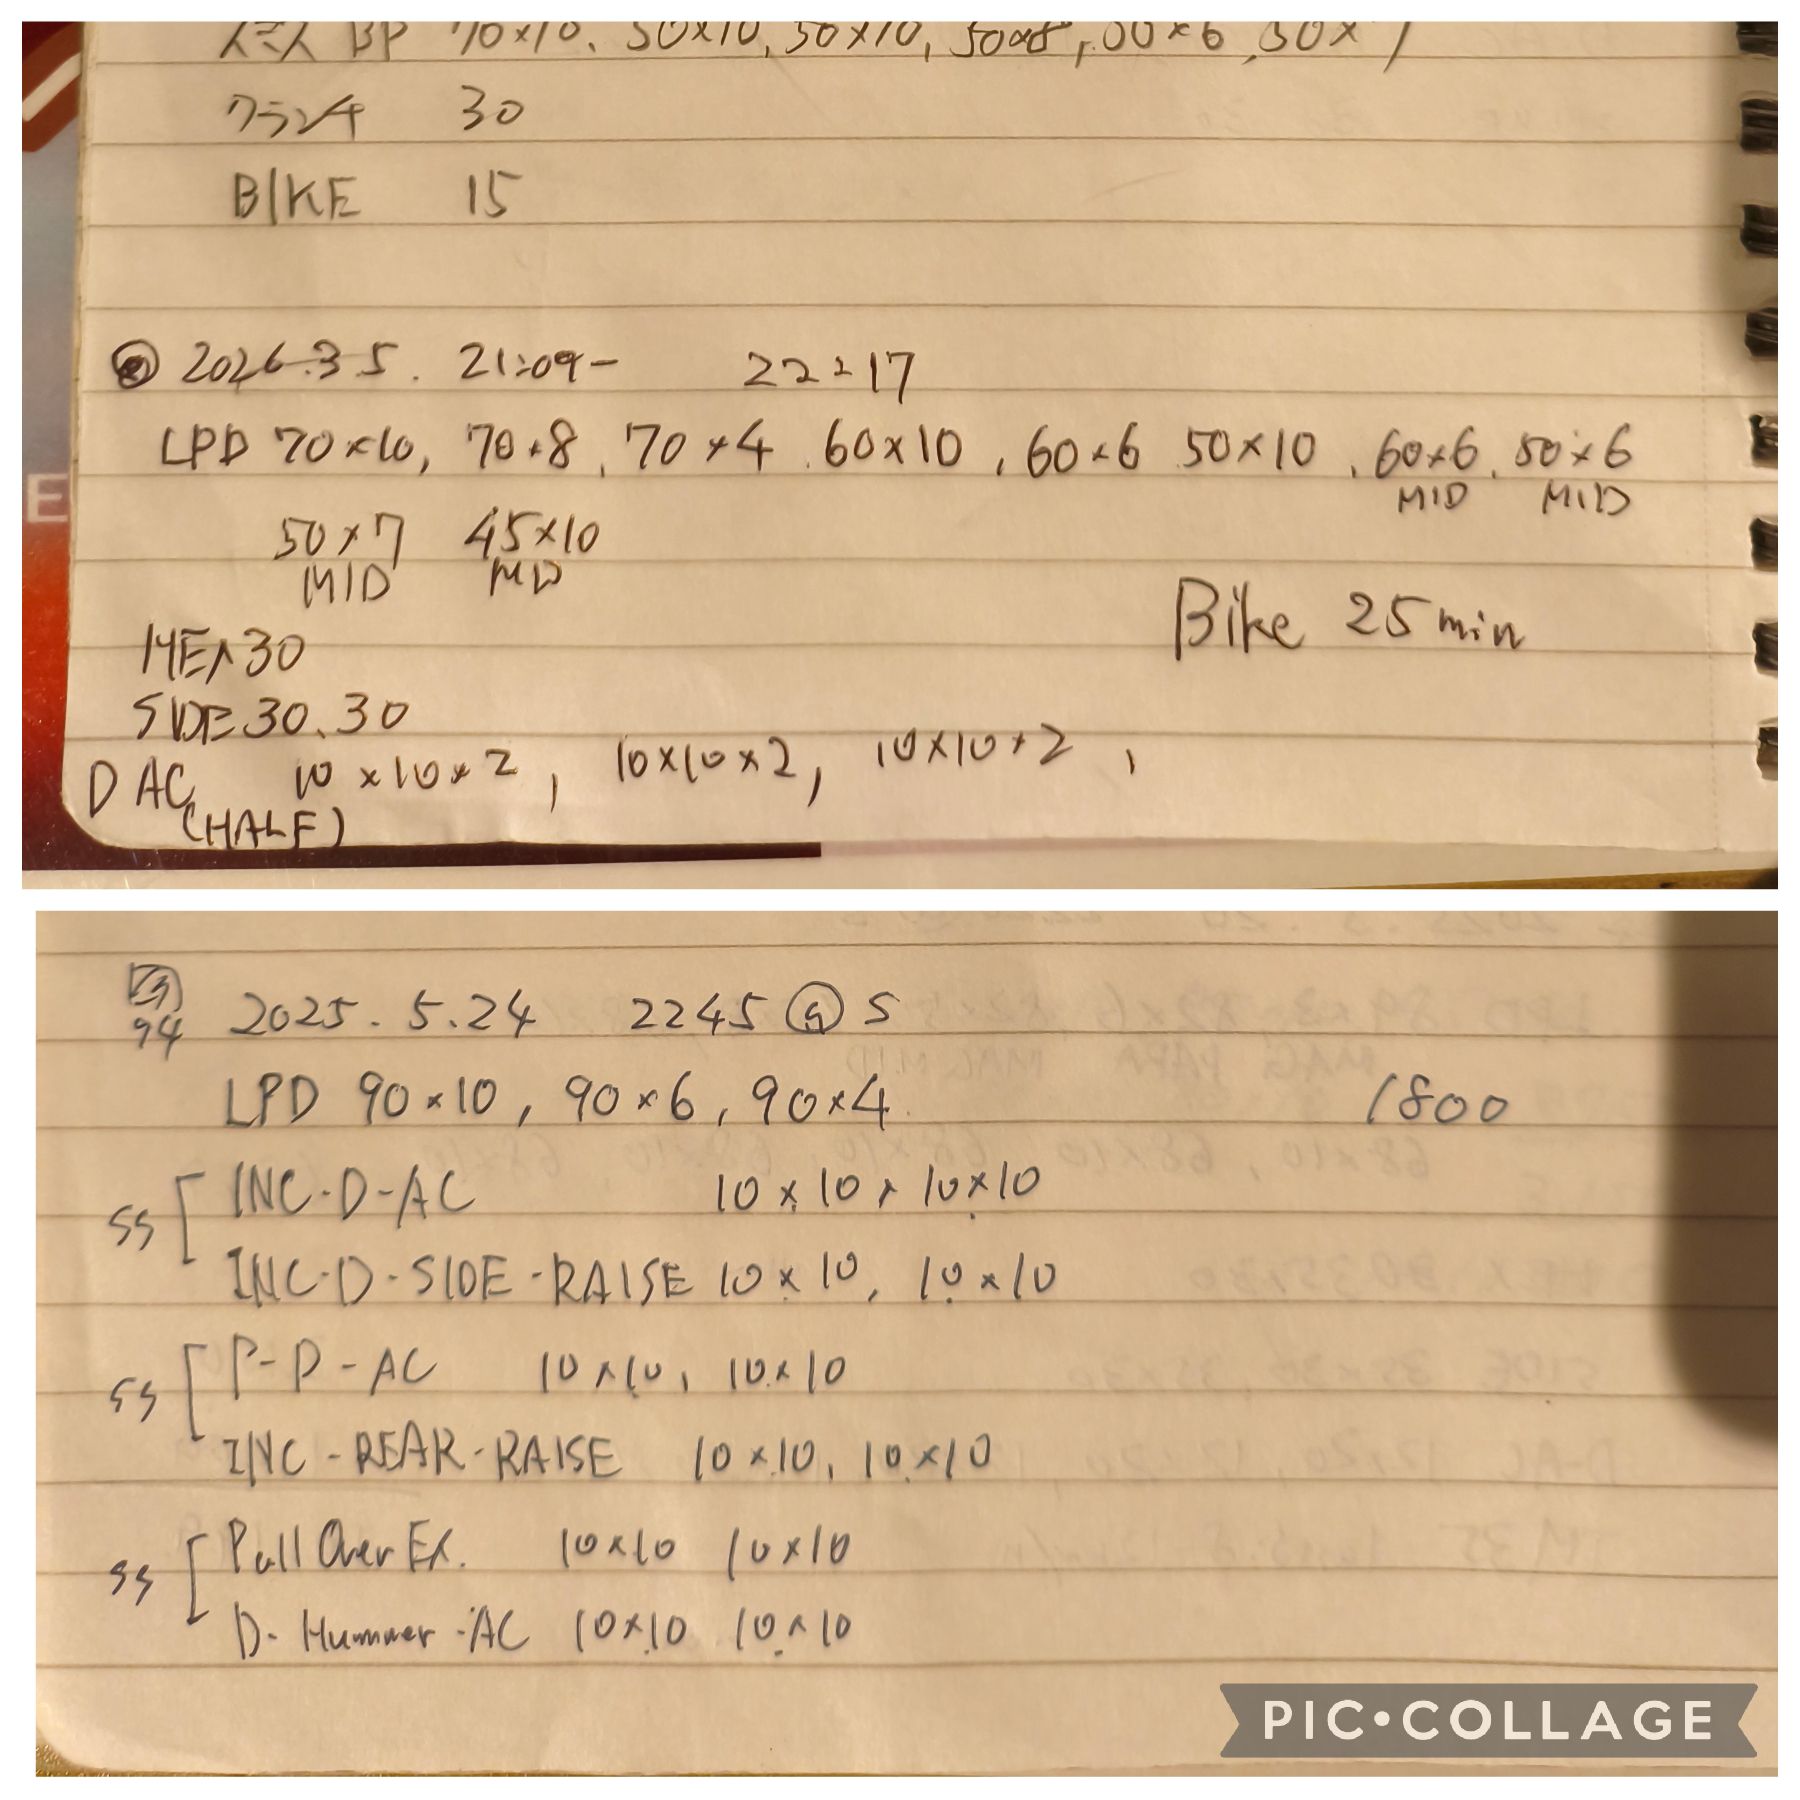 スミス BP 70×10, 50×10, 50×10, 50×8, 50×6, 50×7
クランチ 30
BIKE 15
E
2026.3.5. 21:09- 22:17
LPD 70×10, 70×8, 70×4, 60×10, 60×6 50×10, 60×6, 50×6
MID MID
50×7 45×10
MID MID
30
SIDE 30, 30
Bike 25min
DAC 10×10×2, 10×10×2, 10×10×2,
(HALF)
94 2025.5.24 2245 S
LPD 90×10, 90×6, 90×4 1800
SS INC-D-AC 10×10, 10×10
INC-D-SIDE-RAISE 10×10, 10×10
SS P-D-AC 10×10, 10×10
INC-REAR-RAISE 10×10, 10×10
SS Pull Over Ex. 10×10 10×10
D-Hummer-AC 10×10 10×10
PIC•COLLAGE